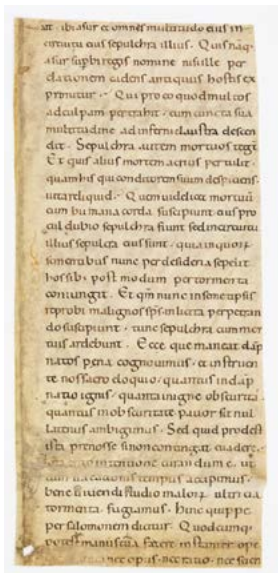 ibi asur et omnis multitudo eius in
circuitu eius sepulchra illius. Quis naq;
asur supbi regis nomine nisi ille per
elationem cadens antiquus hostis ex
primitur. Qui pro eo quod multos
ad culpam pertrahit. cum cuncta sua
multitudine ad inferni claustra descen
dit. Sepulchra autem mortuos tegt.
Et quis alius mortem acrius pertulit.
quam his qui conditorem suum despiciens.
uitam reliquid. Quem uidelicet mortuū
cum humana corda suscipiunt. eius pro
cul dubio sepulchra fiunt. sed in circuitu
illius sepulcra eius sunt. quia in quorū
se mentibus nunc per desideria sepelit
hos sibi post modum per tormenta
coniungit. Et qm nunc in semetipsis
reprobi malignos sps inlicita perpetran
do suscipiunt. tunc sepulchra cum mor
tuis ardebunt. Ecce que maneat dāp
natos pena cognouimus. et instruen
te nos sacro eloquio. quantus in dāp
natio ignis. quanta in igne obscuritas.
quantus in obscuritate pauor sit nul
latenus ambigimus. Sed quid prodest
ista prenosse si non contingat euadere.
intentione curandum e. ut
cum uacationis tempus accipimus.
bene uiuendi studio malorū ultricia
tormenta fugiamus. Hinc quippe
per salomonem dicitur. Quodcumq;
potest manus tua facere instanter ope
nec opus. nec ratio. nec